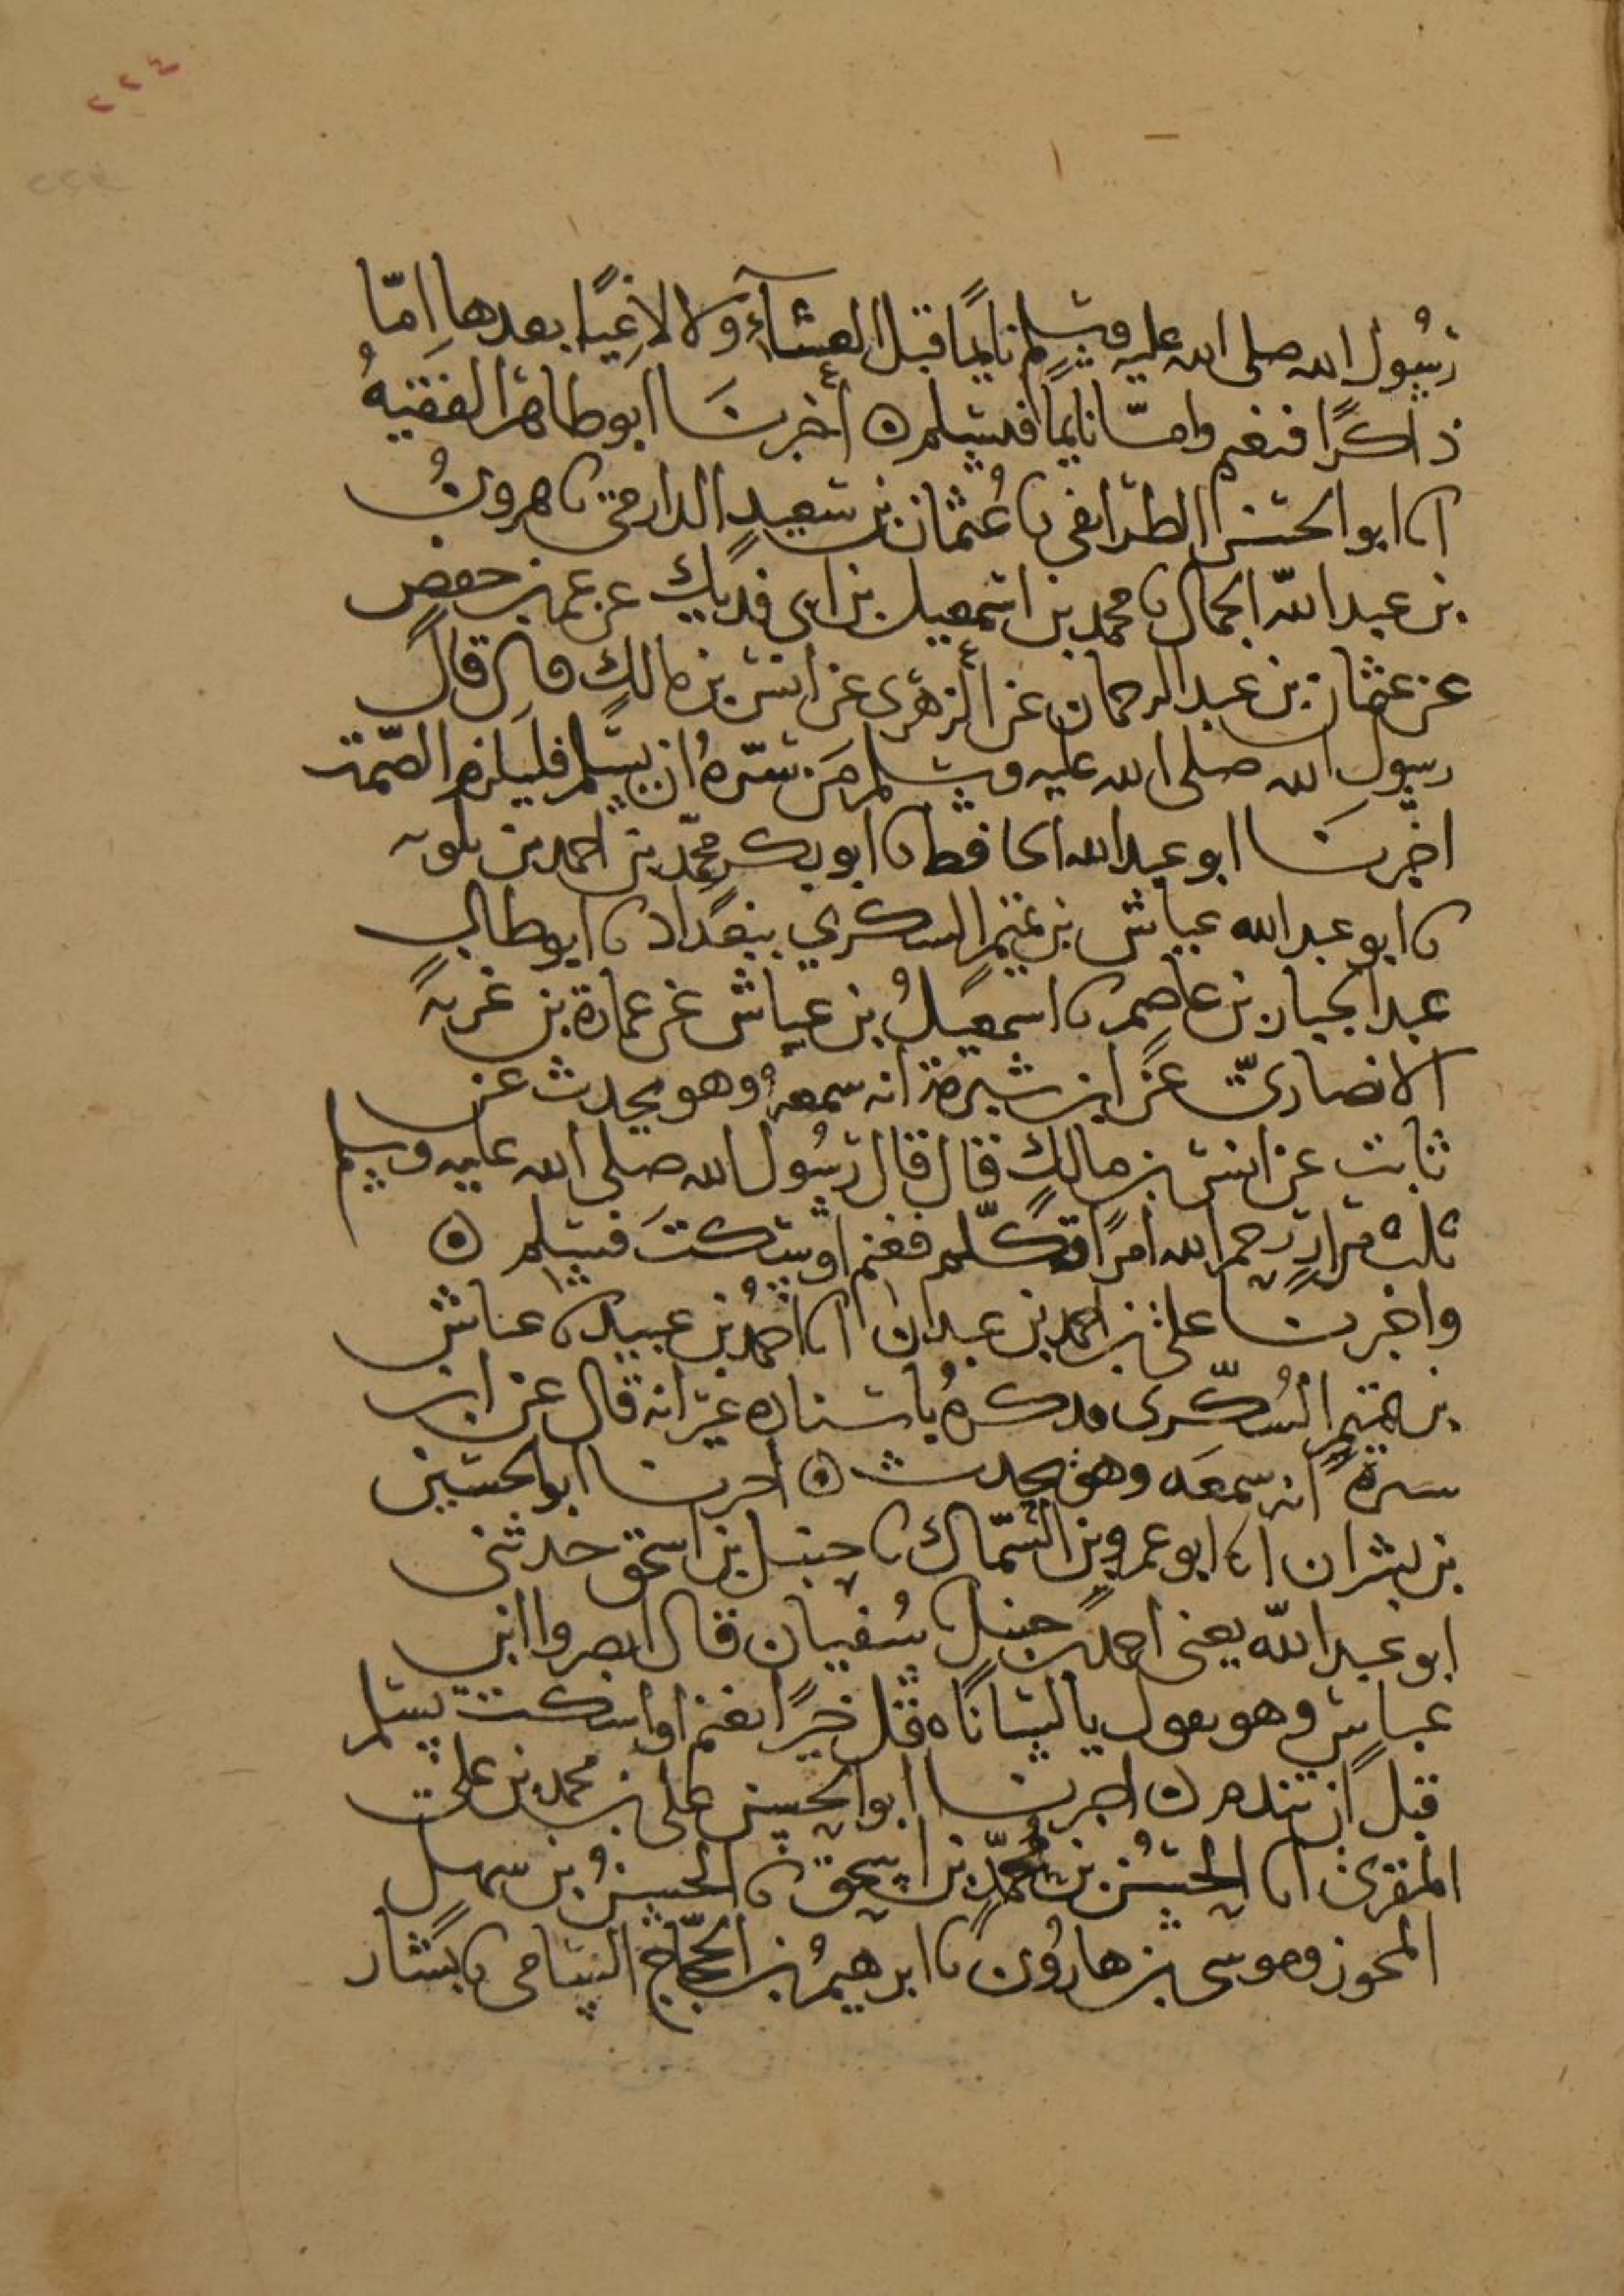 ٢٢٤
رسُول الله صلى الله عليه وسلم نايمًا قبل العشآءِ ولا لاغِيًا بعدها اِمّا
ذاكرًا فنغم وامّا نايمًا فيسلم ٥ أخبرنا ابو طاهر الفقيهُ
انا ابو الحسن الطرايفى نا عُثمان بن سعيدٍ الدارمى نا هرونُ
بن عبد الله الحمال نا محمد بن اسمعيل بن ابى فديك عن عمر بن حفص
عن عثمان بن عبد الرحمان عن الزهرى عن انس بن مالكٍ قال قال
رسول الله صلى الله عليه وسلم مَن سرّهُ ان يسلم فليلزم الصّمت
اخبرنَا ابو عبد الله الحافظ نا ابو بكر محمّد بن احمد بن بلويه
نا ابو عبد الله عياش بن تميمٍ السكري ببغداد نا ابو طالب
عبد الجبار بن عاصم نا اسمعيلُ بن عياش عن عمارة بن غزيةَ
الانصارىّ عن ابن شبرمة انه سمعهُ وهو يحدث عن
ثابت عن انس بن مالكٍ قال قال رسُول الله صلى الله عليه وسلم
ثلث مرارٍ رحم الله امرًا تكلّم فغنم او سكتَ فسلم ٥
واخبرنا على بن احمد بن عبدان انا احمدُ بن عبيد نا عياش
بن تميم السُكّرى فذكرهُ باسناده غير انه قال عن ابن
سبرة انه سمعَه وهو يحدث ٥ اخبرنا ابو الحسين
بن بشران انا ابو عمرو بن السّمّاك نا حنبل بن اسحق حدثنى
ابو عبد الله يعنى احمد بن حنبل نا سُفيان قال ابصروا ابن
عباسٍ وهو يقول يا لساناه قل خيرًا تغنم او اسكت تسلم
قبل ان تندم ٥ اخبرنا ابو الحسن على بن محمد بن على
المقرئ انا الحسنُ بن محمّدِ بن اسحق نا الحسنُ بن سهل
المجوز وموسى بن هارون نا ابرهيمُ بن الحجّاج السامى نا بشار